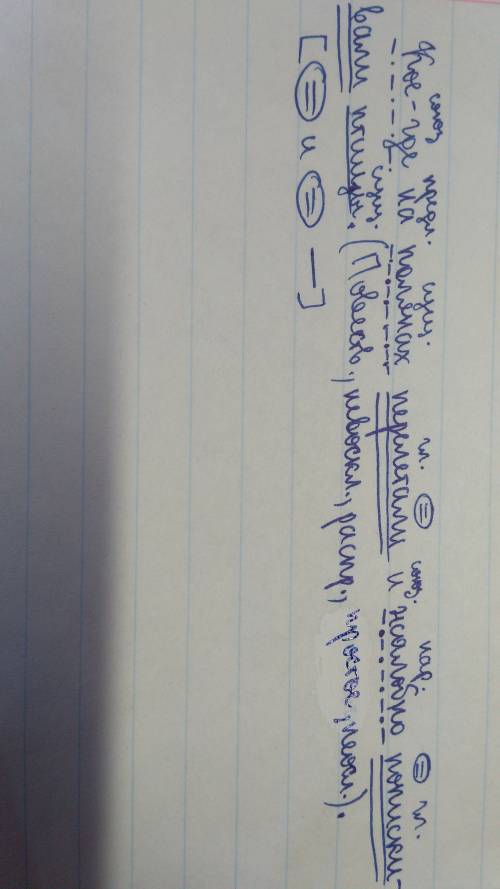 союз предл. сущ. гл. союз. нар. гл.
Кое-где на полянах перелетали и жалобно пописки-
сущ.
вали птицы. (Повеств., невоскл., распр., простое, неосл.).
[= и = —]